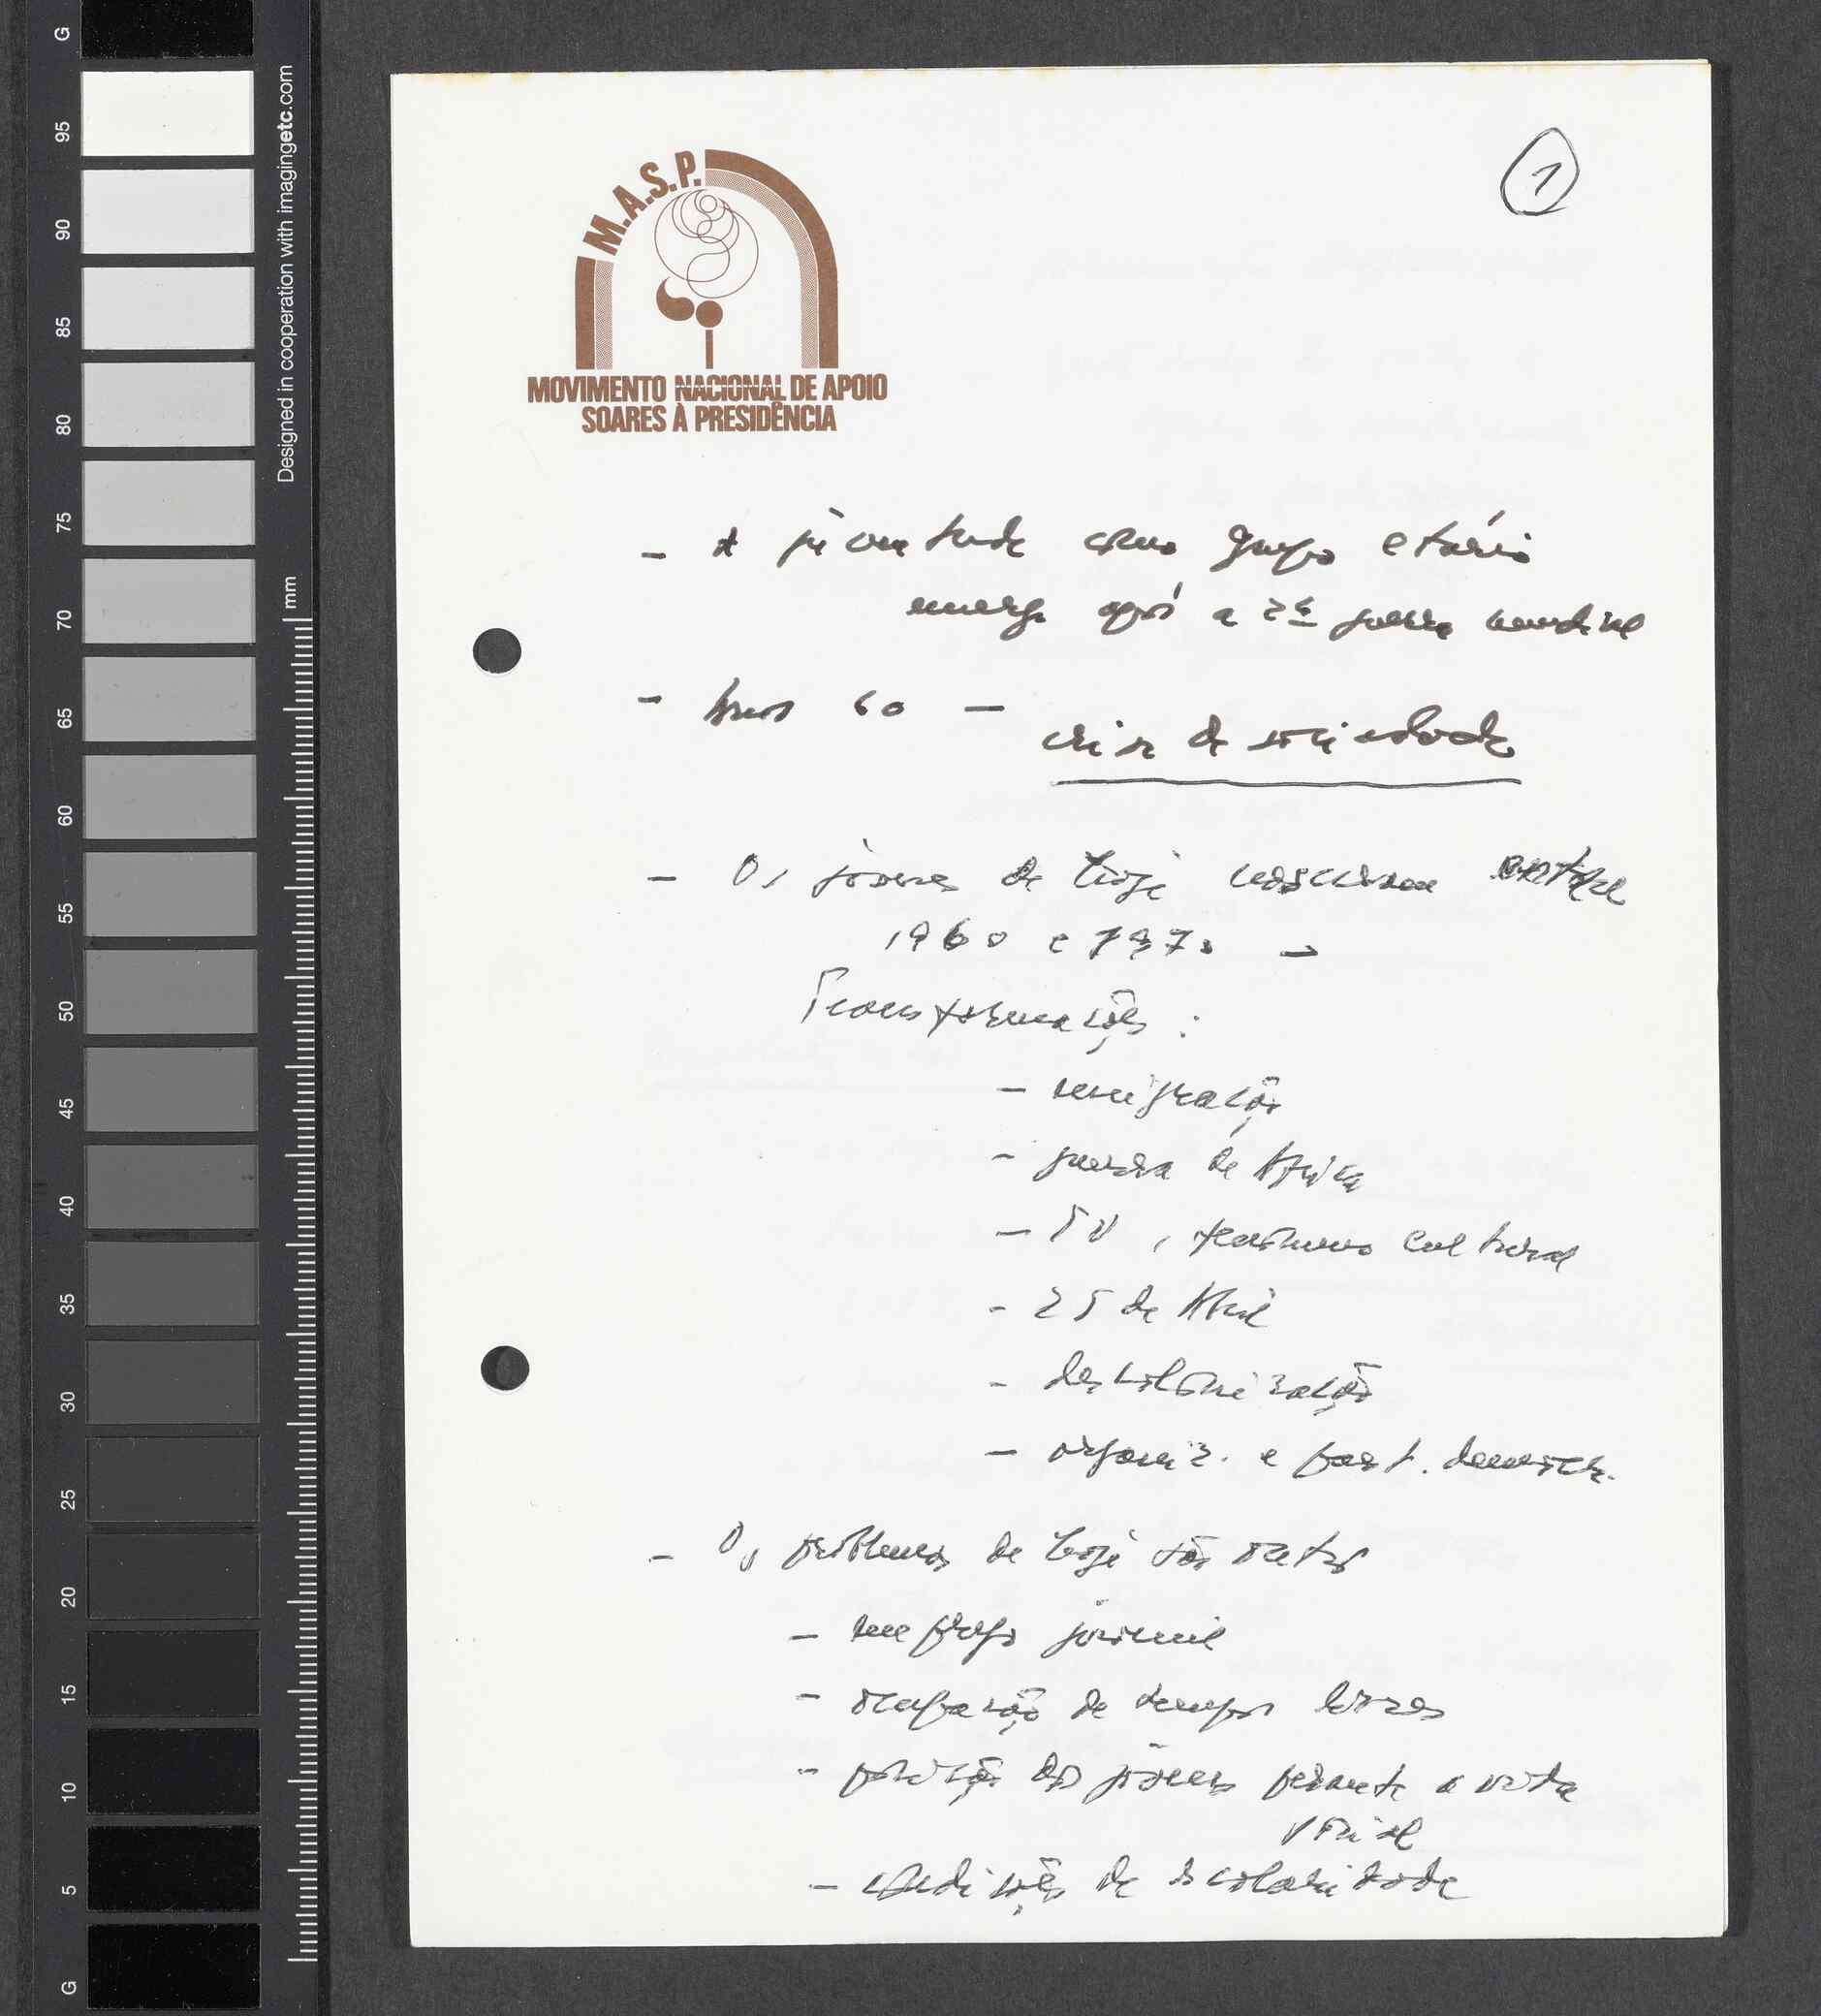 1
M.A.S.P.
MOVIMENTO NACIONAL DE APOIO
SOARES À PRESIDÊNCIA
- A juventude como grupo etário
emerge após a 2ª guerra mundial
- Anos 60 -
crise de sociedade
- Os jovens de hoje nasceram entre
1960 e 1970 -
Transformações :
- emigração
- guerra de África
- TV , turismo cultural
- 25 de Abril
- descolonização
- organiz. e part. democr.
- Os problemas de hoje são outros
- emprego juvenil
- ocupação de tempos livres
- posição dos jovens perante a vida
social
- condições de escolaridade
Designed in cooperation with imagingetc.com
mm
G
95
90
85
80
75
70
65
60
55
50
45
40
35
30
25
20
15
10
5
G